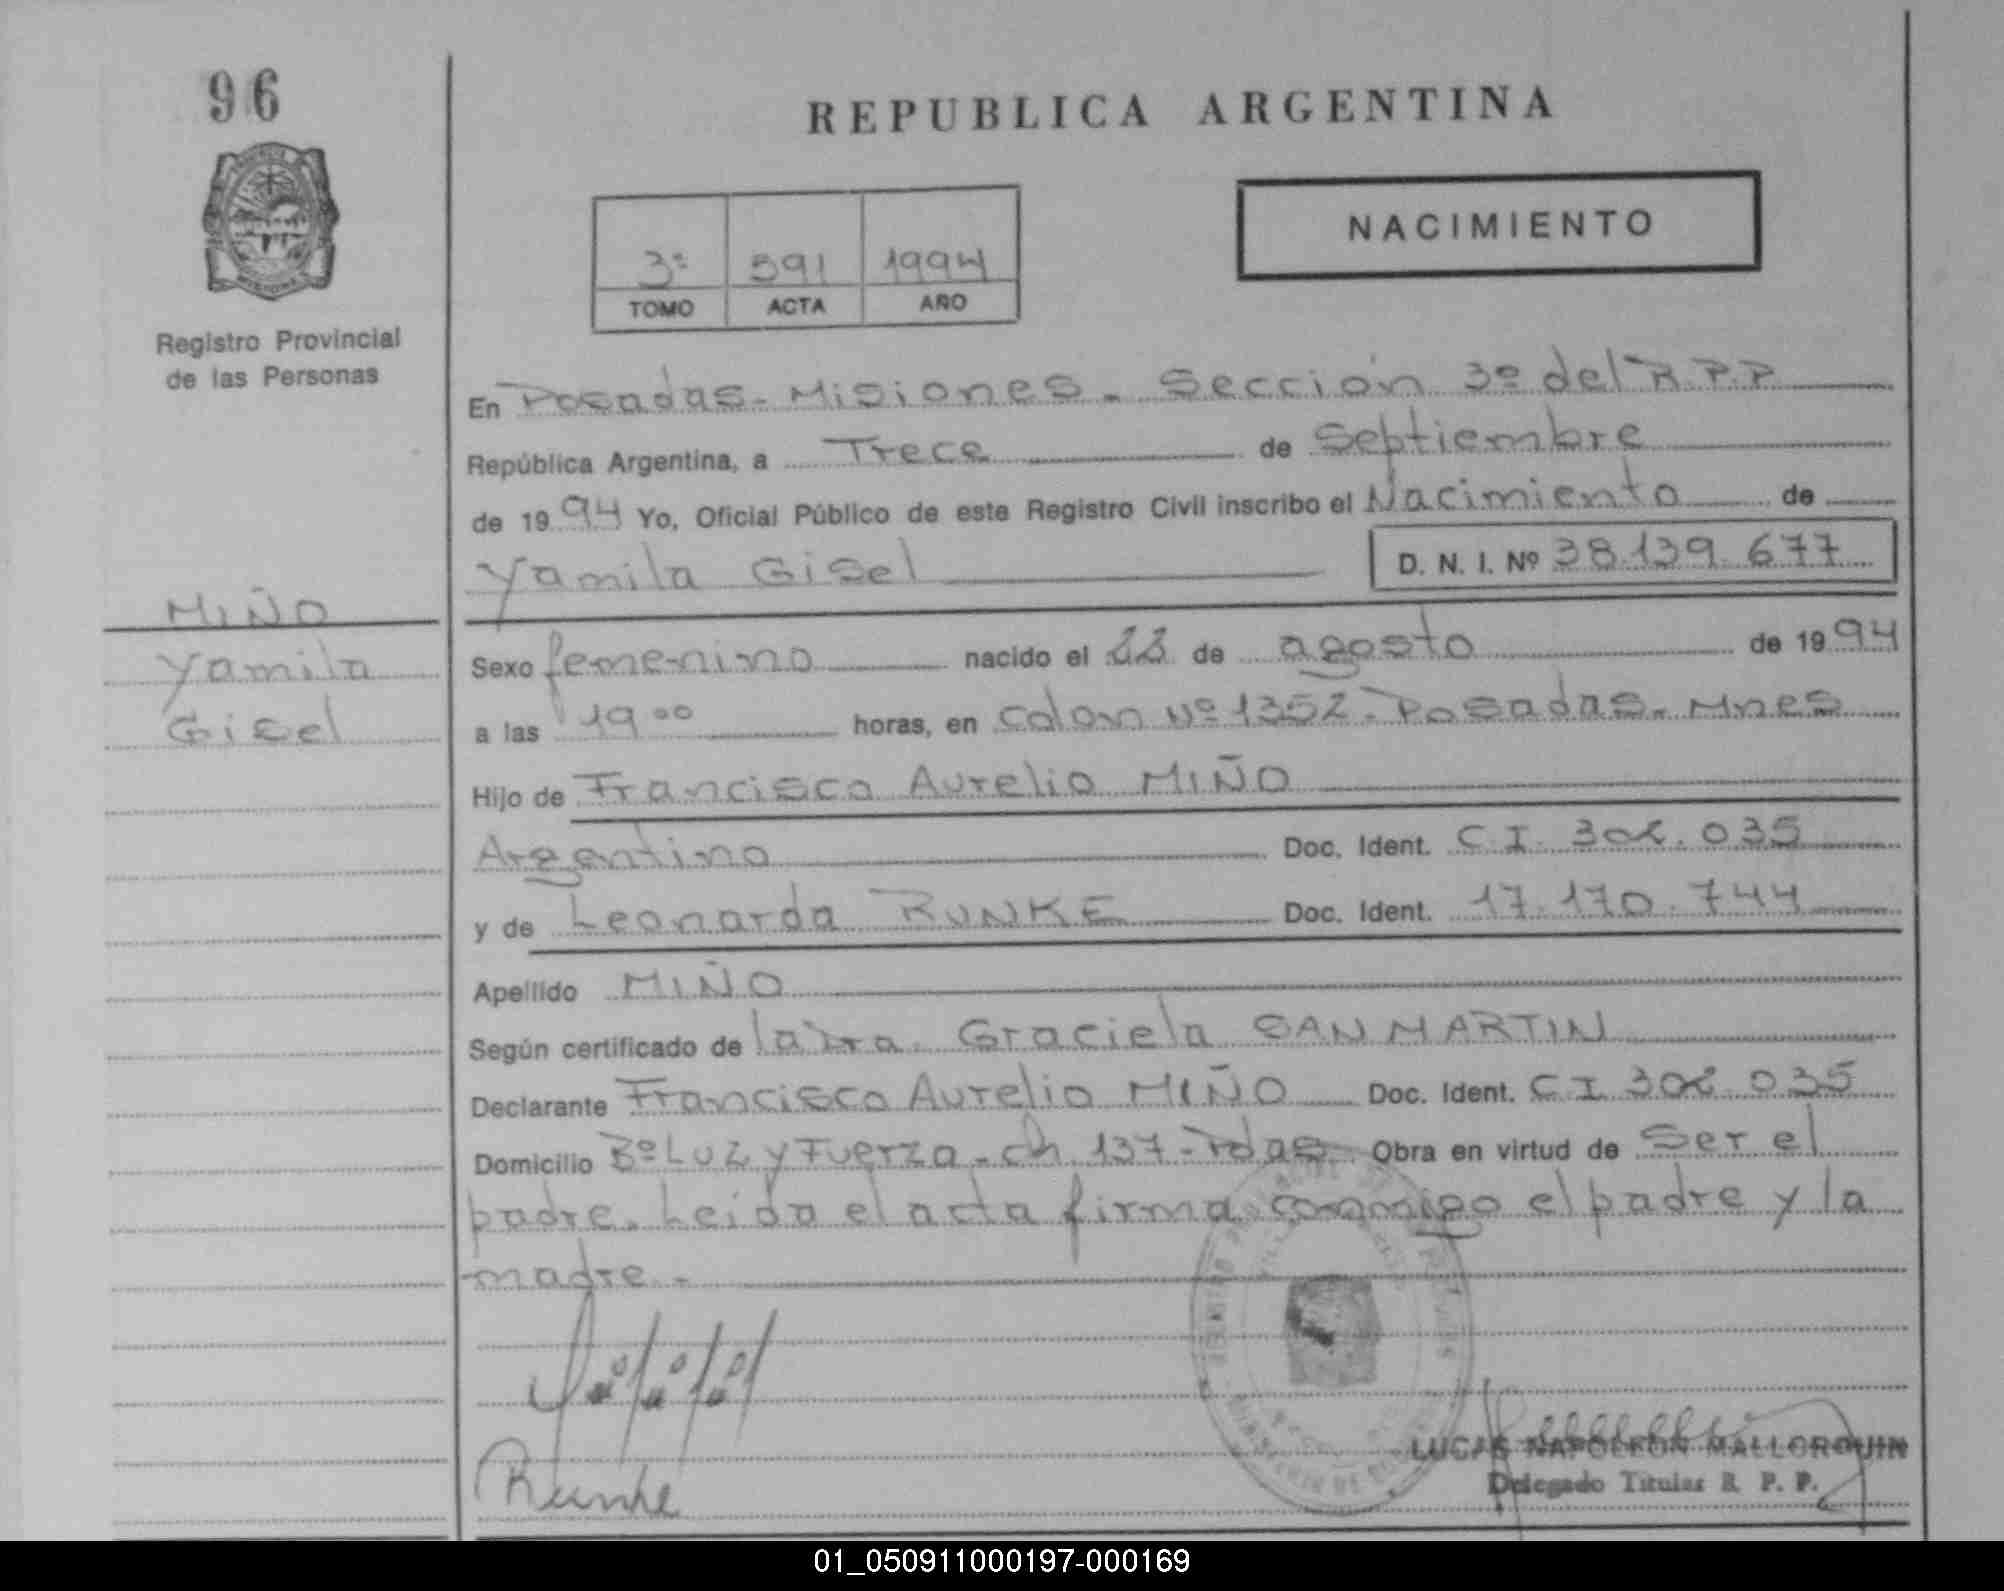 96
REPUBLICA ARGENTINA
NACIMIENTO
3º 591 1994
TOMO ACTA AÑO
Registro Provincial
de las Personas
En Posadas - Misiones - Sección 3º del R.P.P
República Argentina, a Trece de Septiembre
de 1994 Yo, Oficial Público de este Registro Civil inscribo el Nacimiento de
Yamila Gisel D. N. I. Nº 38.139.677
MIÑO
Yamila
Gisel
Sexo femenino nacido el 22 de agosto de 1994
a las 19 00 horas, en Colon Nº 1352 - Posadas - Mnes
Hijo de Francisco Aurelio MIÑO
Argentino Doc. Ident. C.I. 302.035
y de Leonarda RUNKE Doc. Ident. 17.170.744
Apellido MIÑO
Según certificado de la Dra. Graciela SAN MARTIN
Declarante Francisco Aurelio MIÑO Doc. Ident. C I 302.035
Domicilio Bº Luz y Fuerza - ch 137 - Pdas Obra en virtud de Ser el
padre. Leida el acta firma conmigo el padre y la
madre.-
Runke
LUCAS NAPOLEON MALLORQUIN
Delegado Titular R. P. P.
01_050911000197-000169